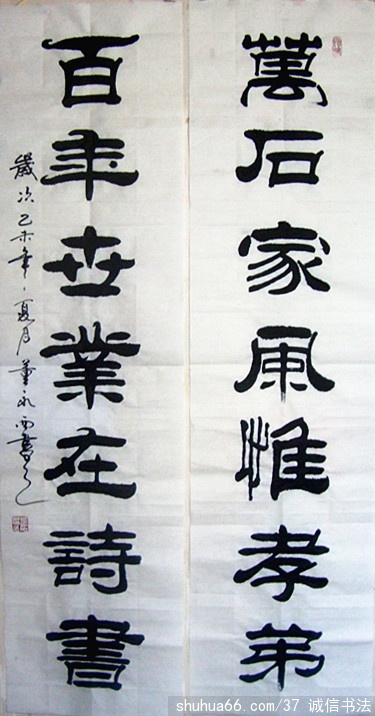 萬石家風惟孝弟
百年世業在詩書
歲次乙未年夏月董永西書之
shuhua66.com/37 诚信书法